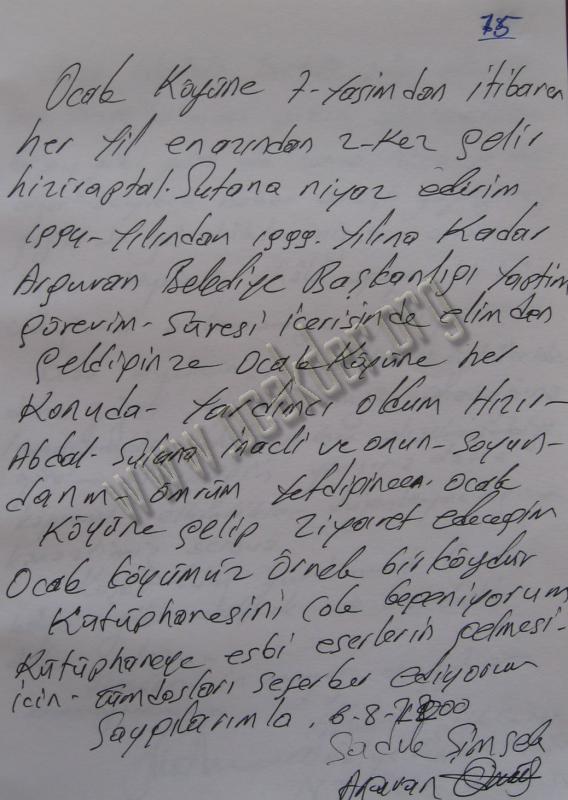 75
Ocak Köyüne 7-Yaşimdan itibaren
her Yil enazından 2-Kez gelir
hiziraptal. Sutana niyaz ederim
1994-Yılından 1999. Yılına Kadar
Arguvan Belediye Başkanlığı Yaptim
görevim-Süresi içerisinde elimden
geldiğinze Ocak Köyüne her
Konuda- Yardımcı oldum Hızır-
Abdal-Sultana inacli ve onun-Soyun-
danım-ömrüm Yetdiğincen. Ocak
Köyüne gelip Ziyaret edeceğim
Ocak Köyümüz Örnek bir köydür
Kütüphanesini Cok beğeniyorum
Kütüphaneye eski eserlerin gelmesi-
için- tümdosları Seferber ediyorum
Saygılarımla. 6-8-2000
Sadık Şimşek
Arguvan
www.ocakder.org